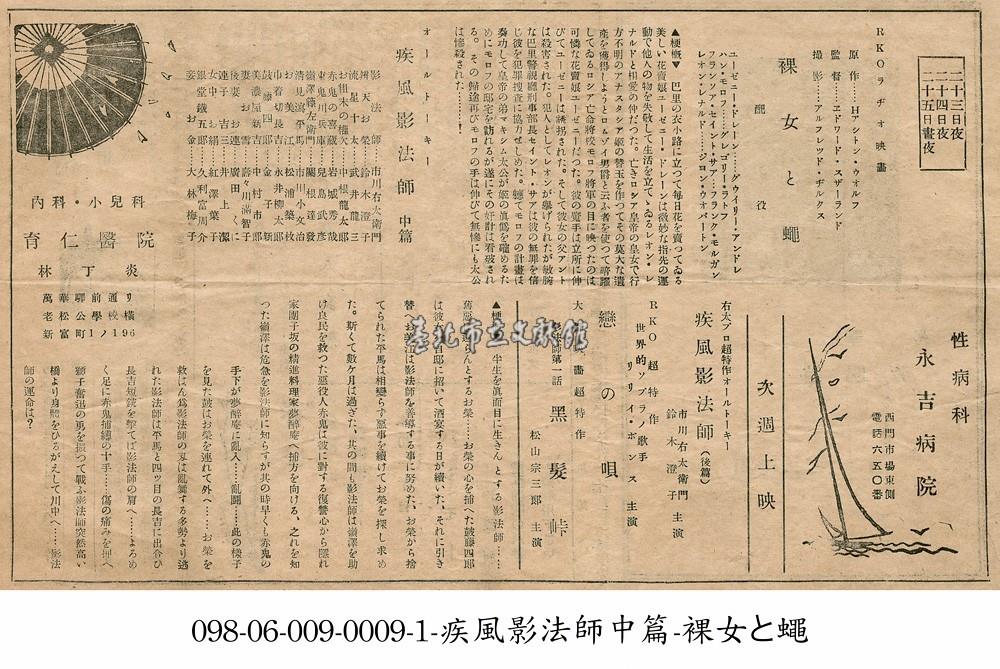 二十三日夜
二十四日夜
二十五日晝夜
RKOラヂオ映畫
裸女と蠅
原作……Hアシトン・ウオルフ
監督……エドワード・スザーランド
撮影……アルフレッド・ギルクス
配役
ユーゼニー・ドレーン……グウイリー・アンドレ
ニキ・モロフ……グレゴリー・ラトフ
フランソア・セイント・サア……フランク・モルガン
レオン・レナルド……ジヨン・ウオバートン
▲梗概▼ 巴里の衣小路に立つて毎日花を賣つてゐる
美しい花賣娘ユーゼニー・ドレーンは微妙な指先の運
動で他人の物を失敬して生活を立てゝゐるレオン・レ
ナルドと相愛の仲だつた。亡きロシア皇帝の皇女で行
方不明のアナスタシア姬の贊玉を作つてその莫大な遺
產を獲得しようとロムゾイ男爵と云ふ者を使つて暗躍
してゐるロシア亡命將校モロフ將軍の目に映つたのは
可憐な花賣娘ユーゼニーだつた。彼の魔手は立所に伸
びてユーゼニーは誘拐された。そして彼女の父アント
は殺害された。犯人としてレオンが擧げられたが敏腕
な巴里警視廳刑事部長セイント・サアは彼の無罪を信
じ彼を犯罪搜査に協力せしめた。軈てモロフの計畫は
奏功して皇帝の弟マキシム太公が姬の眞僞を確めるた
めにモロフの邸宅を訪れるが遂にその奸計は看破され
る。その歸途再びモロフの手は伸びて無慘にも太公
は慘殺された……！
オールトーキー
疾風影法師 中篇
影法師……市川右太衛門
辨天お榮……鈴木澄子
流星十太……武井龍三
お祖末の權次……中根龍太郎
赤鬼の喜藏……岩城秀哉
東鬼兵庫……兒島武彥
嶺澤篠左衛門……關根達發
淸見瀉平馬……市川小文治
お美江……松浦築枝
巾着切長吉……永井柳太郎
鼓藤四郎……金子新
美濃屋新吉……中村市郎
妻お雪……壽々川滿智子
後連お山……廣田くに
連子吉三……井上潔
女師絹……紅澤葉子
銀堂鐵五郎……久利富周介
妾お金……大林梅子
內科・小兒科
育仁醫院
林丁炎
萬華驛前通リ
老松公學校橫
新富町1ノ196
性病科
永吉病院
西門市場東側
電話六五〇番
次週上映
右太プロ超特作オールトーキー
疾風影法師（後篇）
市川右太衛門
鈴木澄子
主演
RKO超特作
世界的ソプラノ歌手
リリイ・ポンス主演
戀の唄
大 畫超特作
師第一話 黑髮峠
松山宗三郎 主演
▲梗 半生を眞面目に生きんとする影法師……
舊惡 らんとするお榮……お榮の心を捕へた鼓藤四郎
は彼女 右邸に招いて酒宴する日が續いた、それに引き
替へお美江は影法師を善導する事に努めた、お榮から捨
てられた平馬は相變らず惡事を續けてお榮を探し求め
た。斯くて數ヶ月は過ぎた、其の間も影法師は嶺澤を助
け良民を救つた惡役人赤鬼は彼に對する復讐心から隱れ
家團子坂の精進料理家夢醉庵へ捕方を向ける、之れを知
つた嶺澤は危急を影法師に知らすが其の時早くも赤鬼の
手下が夢醉庵に亂入……亂鬪……此の樣子
を見た鼓はお榮を連れて外へ……お榮を
救はん爲影法師の刄は亂舞する多勢より逃
れた影法師は平馬と四ッ目の長吉に出合ひ
長吉短銃を擊てば影法師の肩へ……よろめ
く足に赤鬼捕繩の十手……傷の痛みを押へ
獅子奮迅の勇を揮つて戰ふ影法師突然高い
橋より身體をひるがえして川中へ……影法
師の運命は？
臺北市立文獻館
098-06-009-0009-1-疾風影法師中篇-裸女と蠅